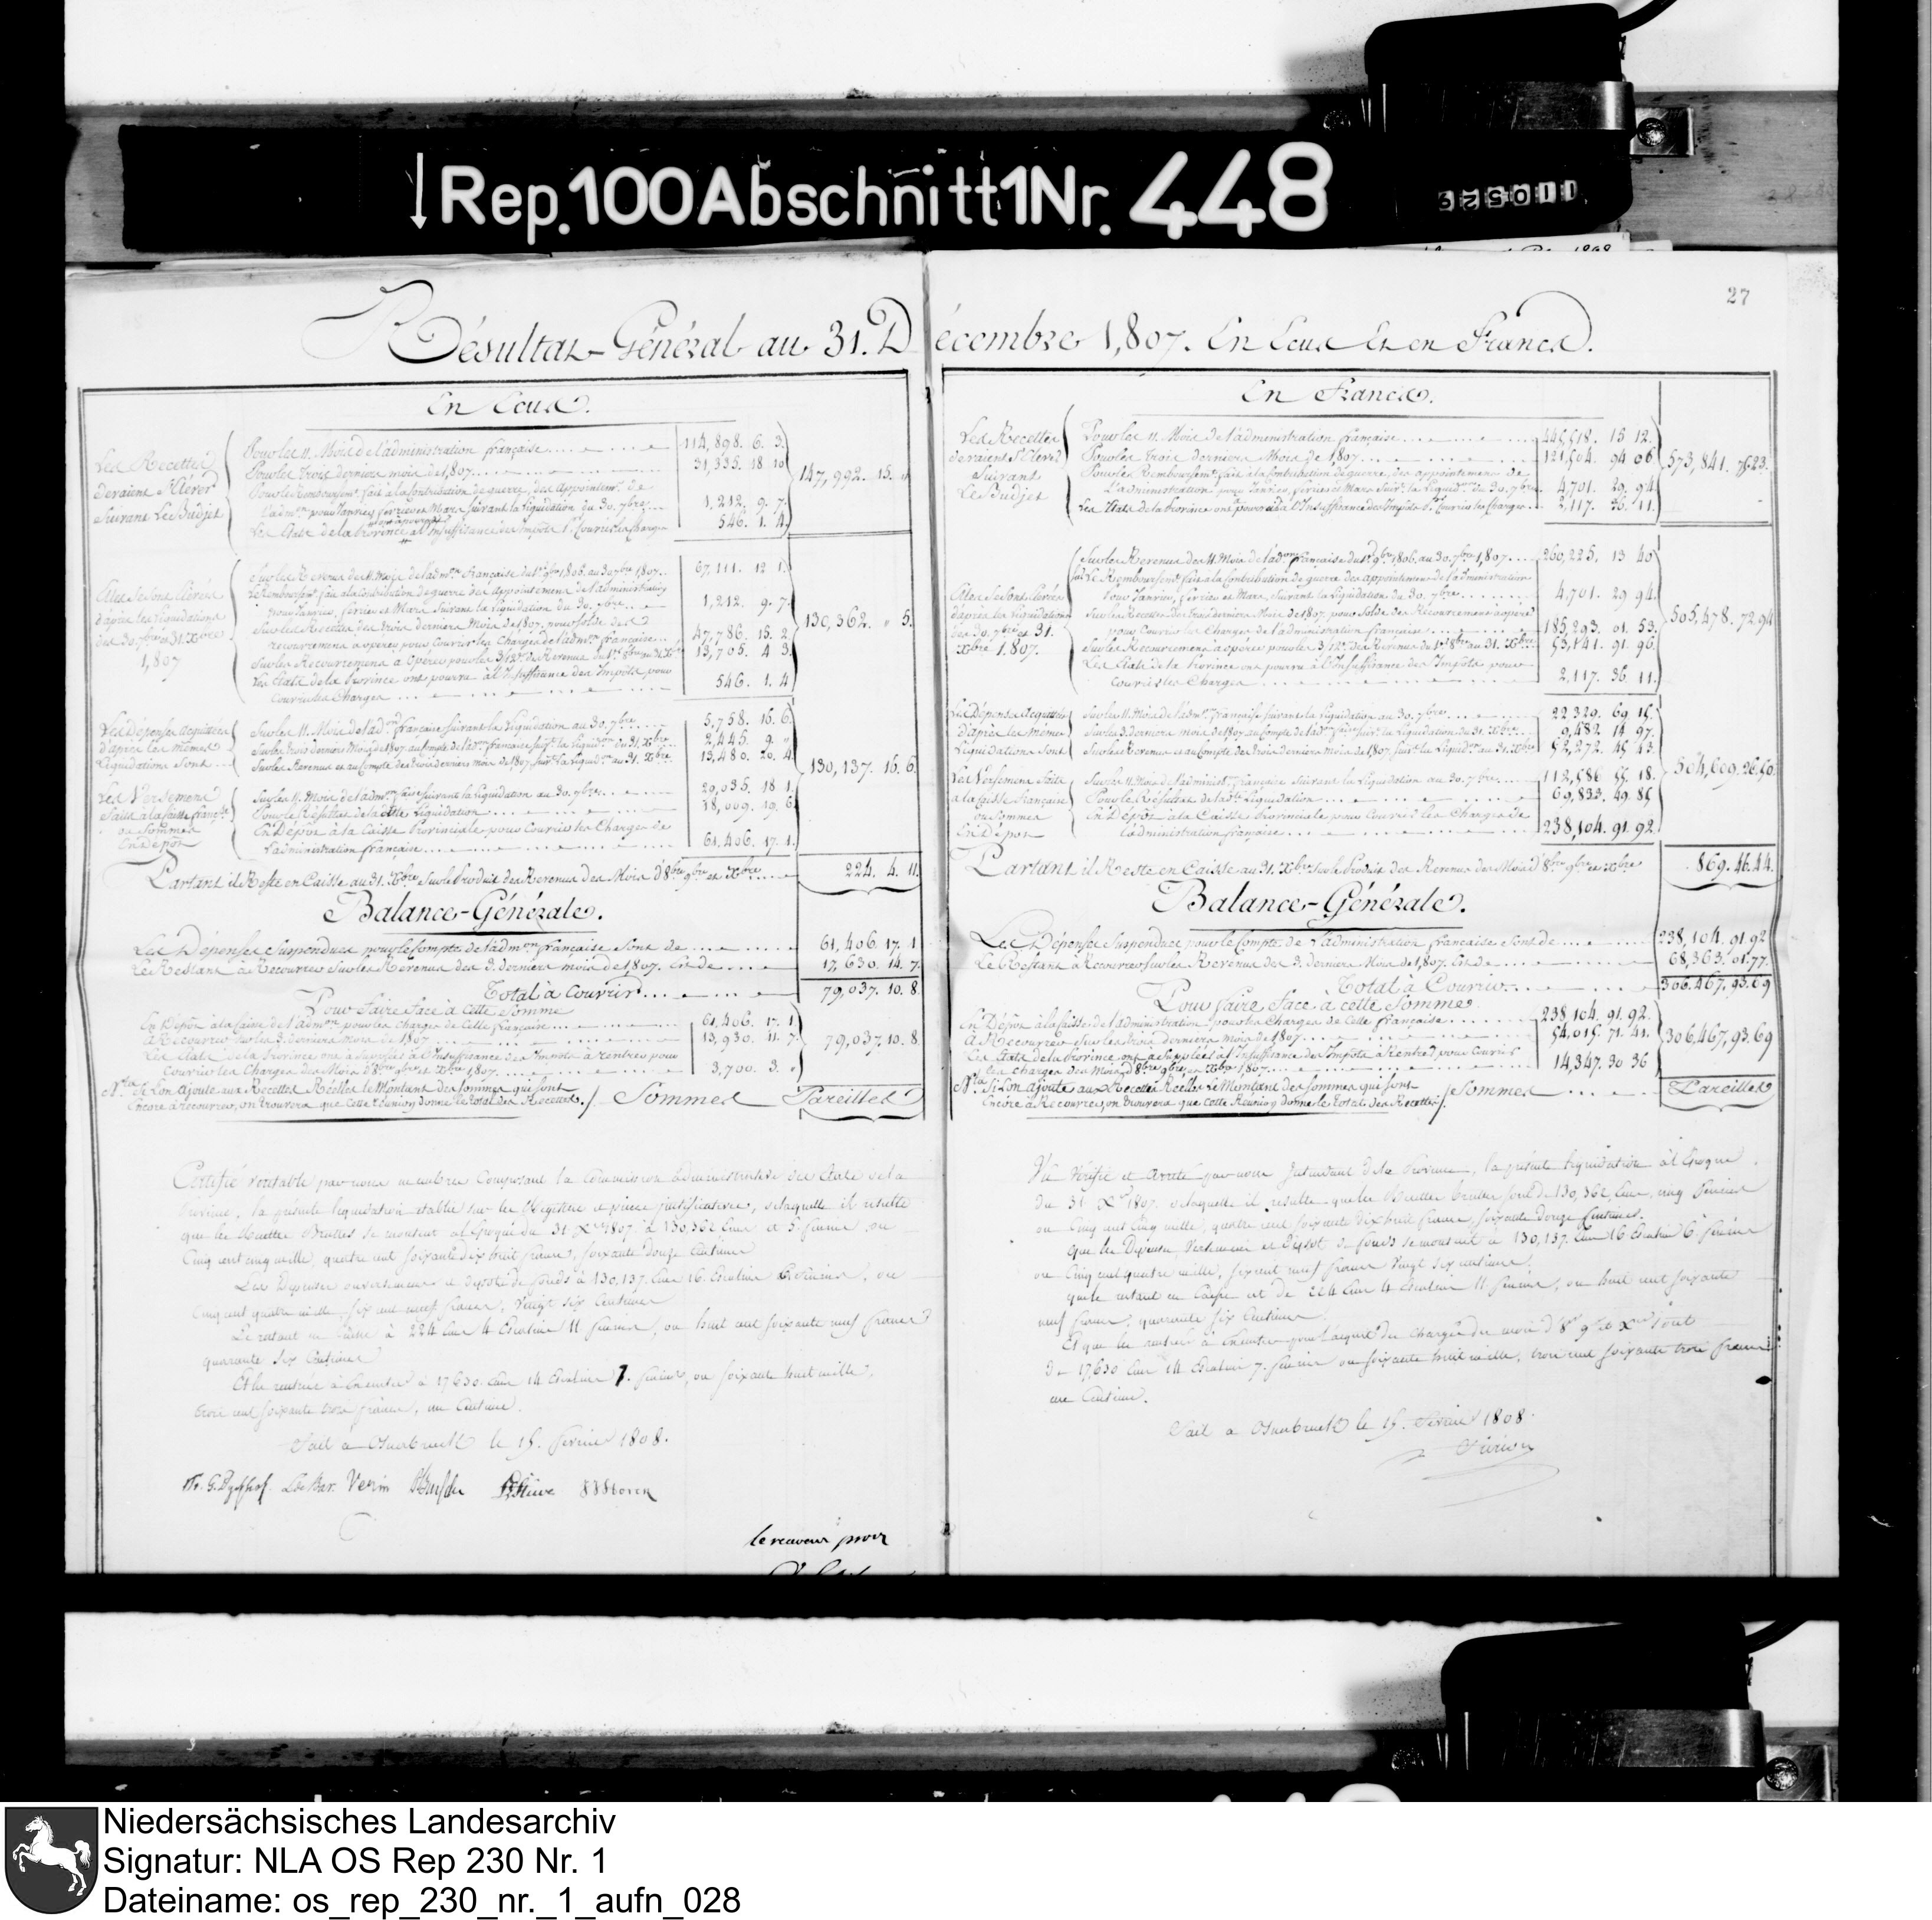 Rep.100Abschnitt1Nr. 448
110529
27
Résultat-Général au 31. Décembre 1,807. En Ecus Et en Francs.
En Ecus.
Les Recettes
devaient S'Elever
Suivant Le Budjet
Pour les 11. Mois de l'administration française
114,898. 6. 3.
Pour les Trois derniers mois de 1,807.
31,335. 18. 10
147,992. 15. "
Pour le Remboursemt. fait à la Contribution de guerre, des Appointemt. de
l'admon. pour Janvier, février et Mars Suivant la Liquidation du 30. 7bre.
1,212. 9. 7.
Les Etats de la Province à l'Insuffisance des Impôts pr. Couvrir les Charges
546. 1. 4.
Elles Se Sont Elevées
d'après les Liquidations
des 30. 7bre et 31. Xbre
1,807
Sur les Revenus des 11. Mois de l'admon. française du 1er. 9bre 1,806. au 30. 7bre 1,807.
67,111. 12. 1.
Le Remboursemt. fait à la Contribution de guerre des appointemens de l'administration
pour Janvier, février et Mars Suivant la Liquidation du 30. 7bre.
1,212. 9. 7.
Sur les Recettes des trois derniers Mois de 1807. pour Solde des
recouvremens à opérer pour Couvrir les Charges de l'admon. française
47,786. 15. 2.
130,362. " 5.
Sur les Recouvremens à Opérer pour les 3/12es. des Revenus du 1er. 8bre au 31. Xbre
13,705. 4. 3.
Les Etats de la Province ont pourvu à l'Insuffisance des Impôts pour
Couvrir les Charges
546. 1. 4
Les Dépenses acquittées
d'après les mêmes
Liquidations Sont
Sur les 11. Mois de l'admon. française Suivant la Liquidation au 30. 7bre
5,758. 16. 6.
Sur les trois derniers Mois de 1807 au Compte de l'admon. française Suivt. la Liquidon. du 31. Xbre
2,445. 9. "
Sur les Revenus et au Compte des trois derniers mois de 1807. Suivt. la Liquidon. au 31. Xbre.
13,480. 20. 4.
130,137. 16. 6.
Les Versemens
Faits à la Caisse franç.se
ou Sommes
En Dépôt
Sur les 11. Mois de l'admon. franse Suivant la Liquidation au 30. 7bre.
29,035. 18. 1.
Pour le Résultat de la dte Liquidation
18,009. 19. 6.
En Dépôt à la Caisse Provinciale pour Couvrir les Charges de
l'administration française
61,406. 17. 1.
Partant il Reste en Caisse au 31. Xbre Sur le Produit des Revenus des Mois d'8bre 9bre et Xbre
224. 4. 11.
Balance-Générale.
Les Dépenses Suspendues pour le Compte de l'admon. française Sont de
61,406. 17. 1
Le Restant à Recouvrer Sur les Revenus des 3. derniers mois de 1807. Est de
17,630. 14. 7.
Total à Couvrir
79,037. 10. 8.
Pour faire face à cette Somme
En Dépôt à la Caisse de l'admon. pour les Charges de Celle française
61,406. 17. 1.
à Recouvrer Sur les 3. derniers Mois de 1807
13,930. 11. 7.
79,037. 10. 8.
Les Etats de la Province ont à Suppléer à l'Insuffisance des Impôts à rentrer pour
Couvrir les Charges des Mois d'8bre 9bre et Xbre 1,807
3,700. 3. "
Nta. Si l'on ajoute aux Recettes Réelles le Montant des Sommes qui Sont
Encore à recouvrer, on trouvera que cette réunion donne le total des Recettes.
Sommes Pareilles
Certifié véritable par nous membres Composant la Commission administrative des Etats de la
Province, la présente liquidation établie sur les Registres et pièces justificatives, de laquelle il résulte
que les Recettes Brutes se montent à l'époque du 31. Xbre 1807 à 130,362 Ecus et 5. fenins ou
Cinq cent cinq mille, quatre cent soixante dix huit francs, soixante douze Centimes
Les Dépenses ou versemens et dépôt de fonds à 130,137. Ecus 16. Escalins 6 fenins, ou
Cinq cent quatre mille, six cent neuf francs, vingt six Centimes
Le restant en Caisse à 224 Ecus 4 Escalins 11 fenins, ou huit cent soixante neuf francs
quarante six Centimes
Et les rentrées à Effectuer à 17630. Ecus 14 Escalins 7. fenins, ou soixante huit mille,
trois cent soixante trois francs, un Centime.
Fait à Osnabruck le 15. février 1808.
Le receveur provr
En Francs.
Les Recettes
devaient S'Elever
Suivant
Le Budjet
Pour les 11. Mois de l'administration française
445,518. 15 12.
Pour les Trois derniers Mois de 1807
121,504. 94 06.
573,841. 75 23.
Pour le Remboursemt. fait à la Contribution de guerre, des appointemens de
l'administration pour Janvier, février et Mars Suivt. la Liquidon. du 30. 7bre
4,701. 29. 94.
Les Etats de la Province ont pourvu à l'Insuffisance des Impôts Pr. Couvrir les Charges
2,117. 36. 11.
Elles Se Sont Elevées
d'après les Liquidations
des 30. 7bre et 31.
Xbre 1,807.
Sur les Revenus des 11. Mois de l'admon. française du 1er. 9bre 1,806. au 30. 7bre 1,807
260,225. 13 40
Sur Le Remboursemt. fait à la Contribution de guerre des appointemens de l'administration
pour Janvier, février et Mars, Suivant la Liquidation du 30. 7bre
4,701. 29. 94.
Sur les Recettes des Trois derniers Mois de 1807, pour Solde des Recouvremens à opérer
pour Couvrir les Charges de l'administration française
185,293. 01. 53.
505,478. 72 94
Sur les Recouvremens à opérer pour les 3/12es. des Revenus du 1er. 8bre au 31. Xbre
53,141. 91. 96.
Les Etats de la Province ont pourvu à l'Insuffisance des Impôts pour
Couvrir les Charges
2,117. 36 11.
Les Dépenses Acquittées
d'après les Mêmes
Liquidations Sont
Sur les 11. Mois de l'admon. française Suivant la Liquidation au 30. 7bre
22,329. 69. 15.
Sur les 3. derniers mois de 1807 au Compte de l'admon. franse Suivt. la Liquidation du 31. Xbre
9,482. 14. 97.
Sur les Revenus et au Compte des Trois derniers Mois de 1807, Suivt. la Liquidon. au 31. Xbre
52,272. 45. 43.
504,609. 26. 50.
Les Versemens Faits
à la Caisse Française
ou Sommes
En Dépôt
Sur les 11. Mois de l'administ. française Suivant la Liquidation au 30. 7bre
112,586. 55. 18.
Pour le Résultat de la dte Liquidation
69,833. 49. 85.
En Dépôt à la Caisse Provinciale pour Couvrir les Charges de
l'administration française
238,104. 91. 92.
Partant il Reste en Caisse au 31. Xbre Sur le Produit des Revenus des Mois d'8bre 9bre et Xbre
869. 46. 44.
Balance-Générale.
Les Dépenses Suspendues pour le Compte de l'administration française Sont de
238,104. 91. 92
Le Restant à Recouvrer Sur les Revenus des 3. derniers Mois de 1807. Est de
68,363. 01. 77.
Total à Couvrir
306,467. 93. 69
Pour faire face à cette Somme
En Dépôt à la Caisse de l'administration pour les Charges de Celle française
238,104. 91. 92.
à Recouvrer Sur les trois derniers Mois de 1807
54,015. 71. 41.
306,467, 93. 69
Les Etats de la Province ont à Suppléer à l'Insuffisance des Impôts à Rentrer pour Couvrir
les Charges des Mois d'8bre 9bre et Xbre 1,807
14,347. 30 36
Nta. Si l'on ajoute aux Recettes Réelles Le Montant des Sommes qui Sont
Encore à Recouvrer, on trouvera que cette Réunion donne le total des Recettes.
Sommes Pareilles
Vu Vérifié et arrêté par nous Intendant de la Province, la présente liquidation à l'époque
du 31. Xbre 1807. de laquelle il résulte que les Recettes brutes sont de 130,362 Ecus, cinq fenins
ou Cinq cent Cinq mille, quatre cent soixante dix huit francs, soixante douze Centimes.
Que les Dépenses, Versemens et Dépôt de fonds se montent à 130,137. Ecus 16 Escalins 6 fenins
ou Cinq cent quatre mille, six cent neuf francs vingt six centimes.
Que le restant en Caisse est de 224 Ecus 4 Escalins 11 fenins, ou huit cent soixante
neuf francs, quarante six Centimes
Et que les rentrées à Effectuer pour l'acquit des Charges des mois d'8bre 9bre et Xbre sont
de 17,630 Ecus 14 Escalins 7. fenins ou soixante huit mille, trois cent soixante trois francs
un Centime.
Fait à Osnabruck le 15. Février 1808.
Niedersächsisches Landesarchiv
Signatur: NLA OS Rep 230 Nr. 1
Dateiname: os_rep_230_nr._1_aufn_028